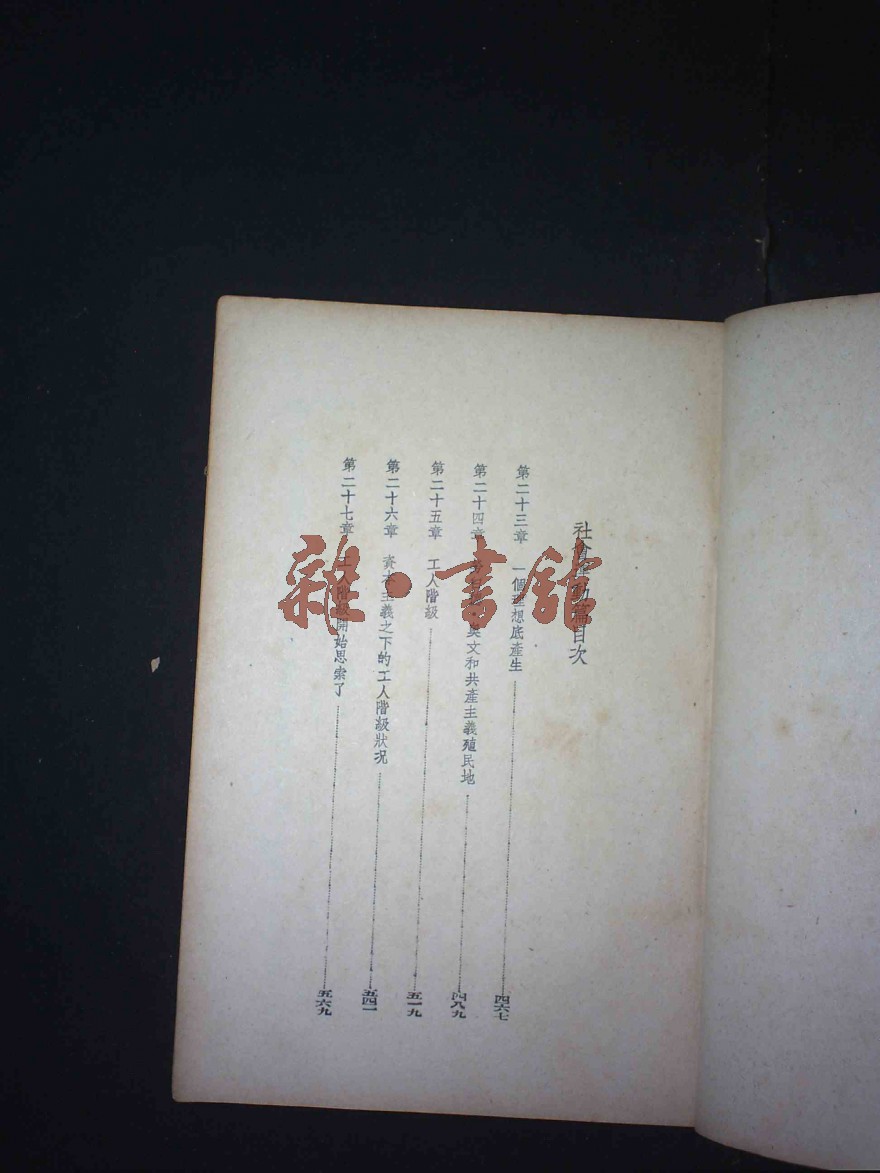 社會運動篇目次
第二十三章 一個理想底產生 四六七
第二十四章 奧文和共產主義殖民地 四八九
第二十五章 工人階級 五一九
第二十六章 資本主義之下的工人階級狀况 五四一
第二十七章 工人階級開始思索了 五六九
雜·書館